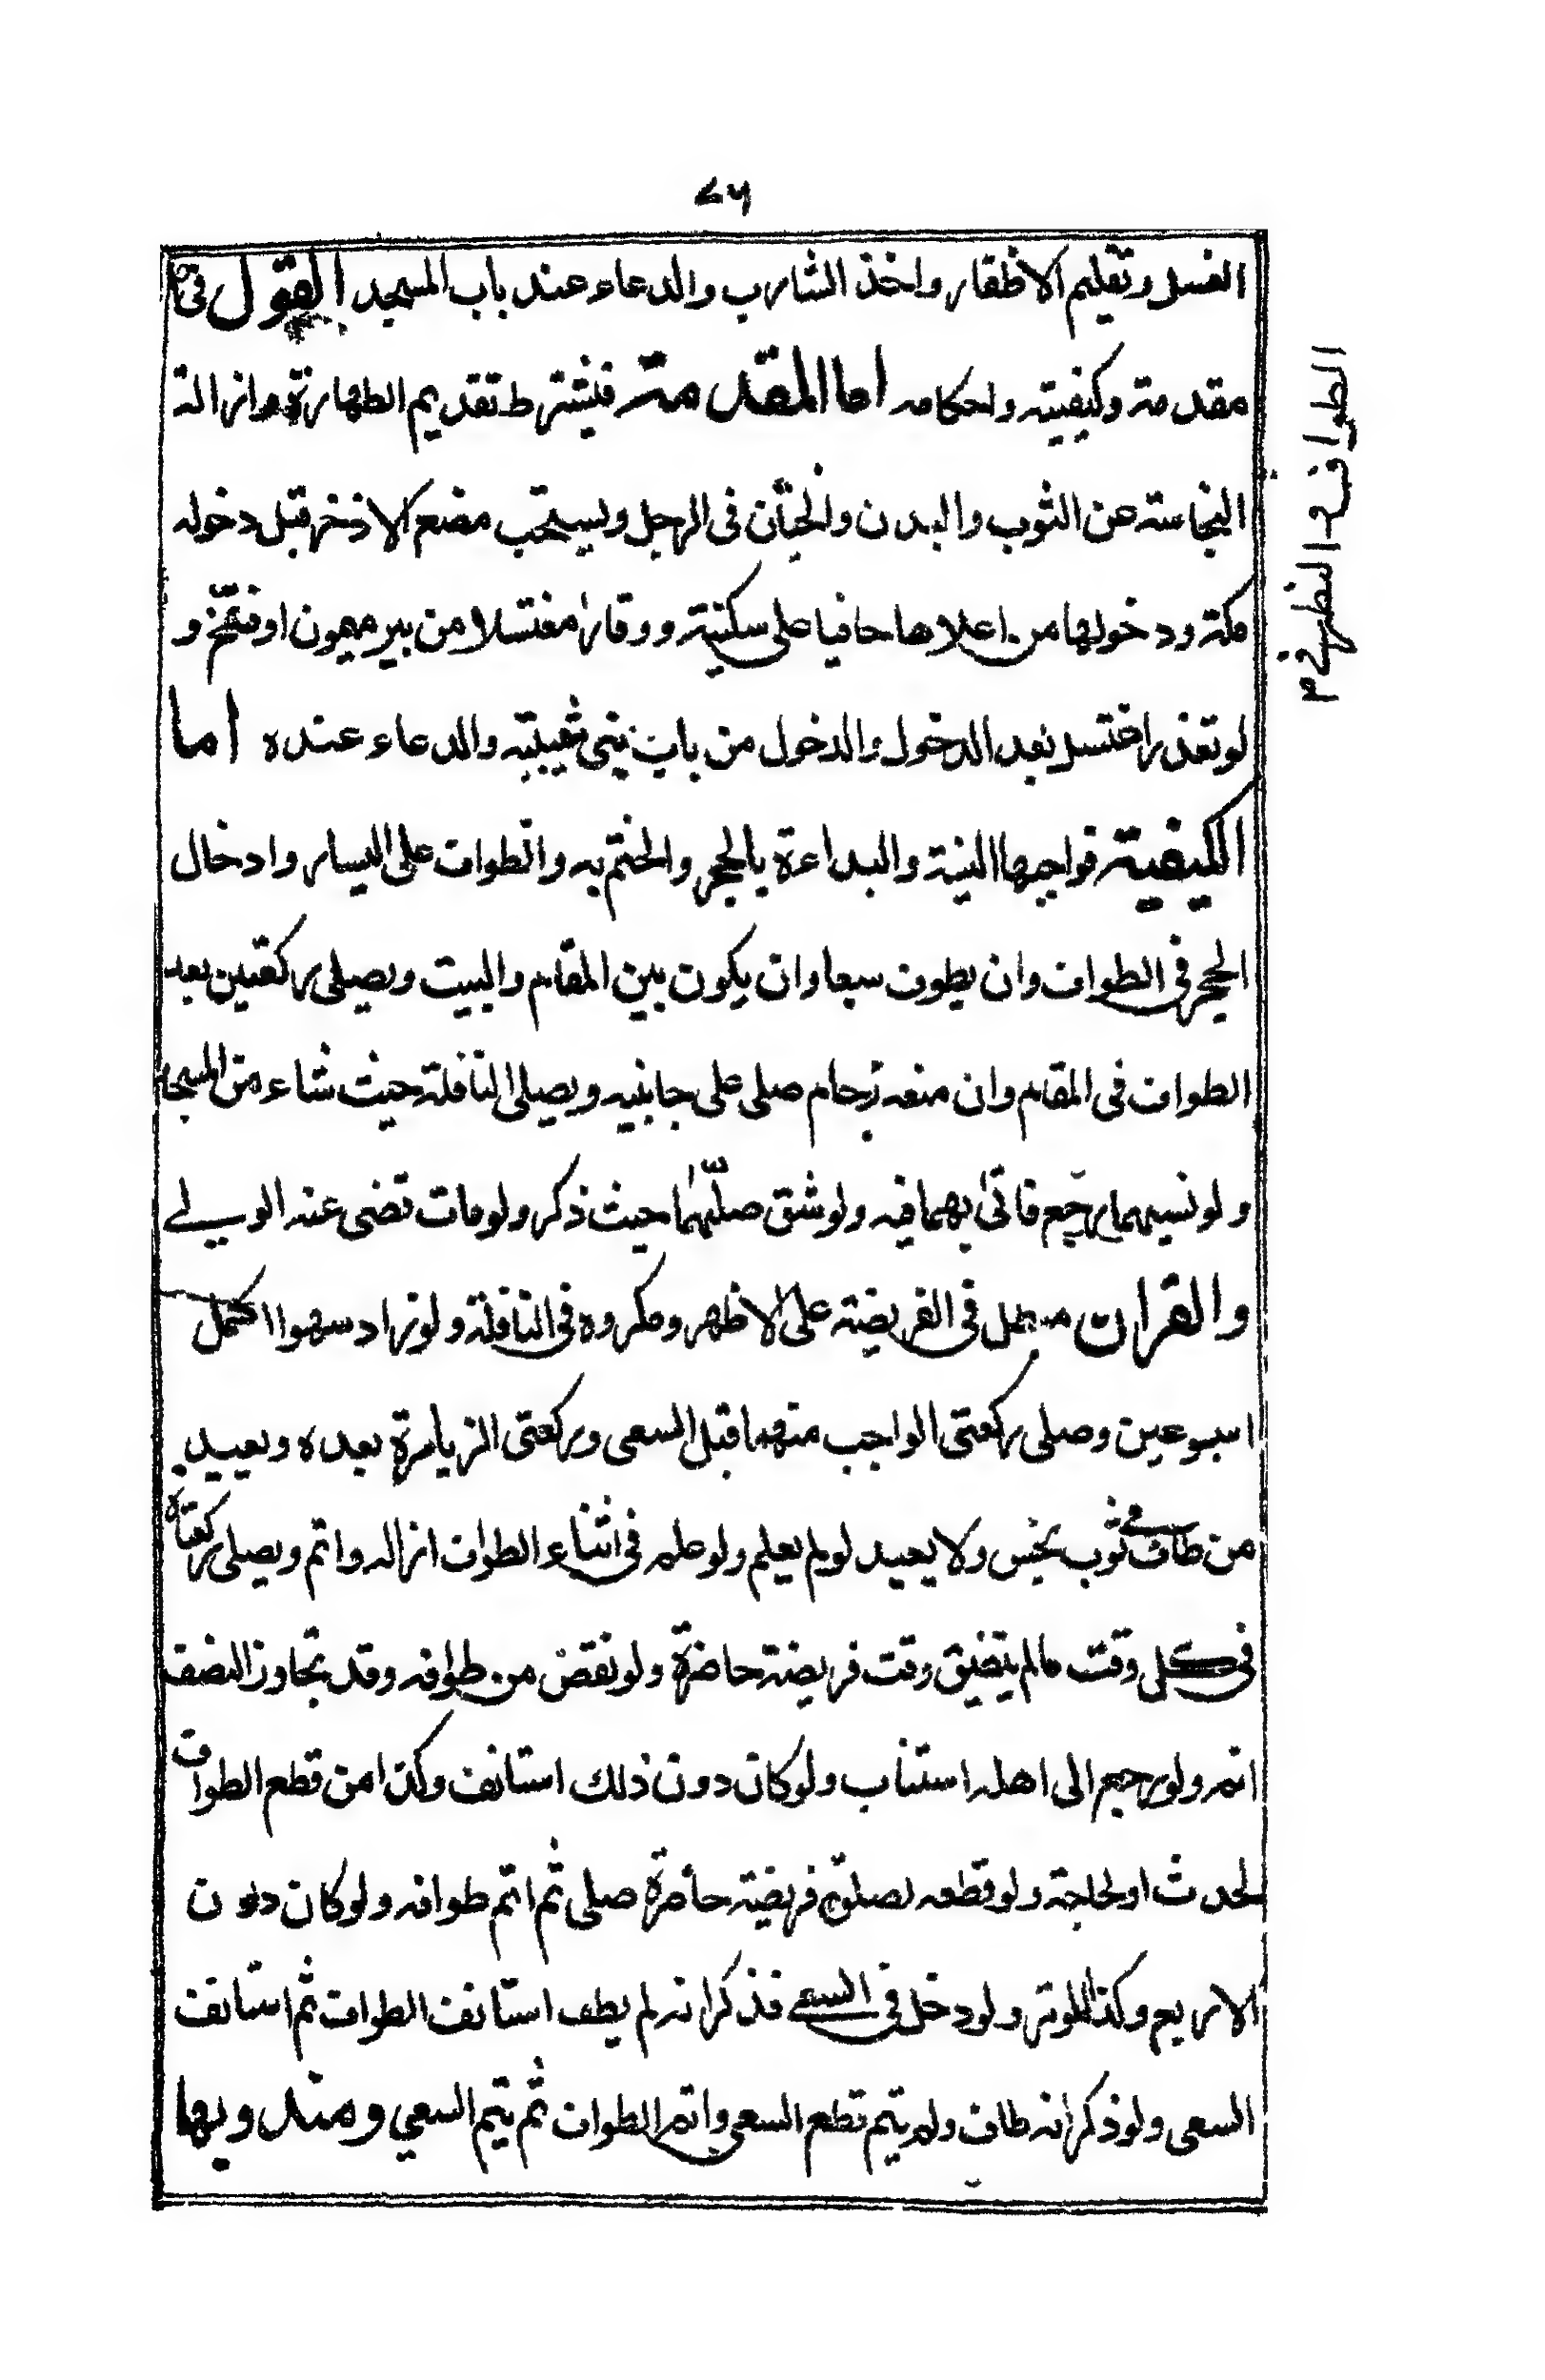 ٧٦
الغسل وتقليم الاظفار واخذ الشارب والدعاء عند باب المسجد القول فى
مقدمة وكيفيته واحكامه اما المقدمة فيشترط تقديم الطهارة وازالة
النجاسة عن الثوب والبدن والختان فى الرجل ويستحب مضغ الاذخر قبل دخوله
مكة ودخولها من اعلاها حافيا على سكينة ووقار مغتسلا من بير ميمون او فخ و
لو تعذر اغتسل بعد الدخول والدخول من باب بنى شيبة والدعاء عنده اما
الكيفية فواجبها النية والبداءة بالحجر والختم به والطواف على اليسار وادخال
الحجر فى الطواف وان يطوف سبعا وان يكون بين المقام والبيت ويصلى ركعتين بعد
الطواف فى المقام وان منعه زحام صلى على جانبيه ويصلى النافلة حيث شاء من المسجد
ولو نسيهما رجع فاتى بهما فيه ولو شق صلّاهما حيث ذكر ولو مات قضى عنه الولى
والقران مبطل فى الفريضة على الاظهر ومكروه فى النافلة ولو زاد سهوا اكمل
اسبوعين وصلى ركعتى الواجب منهما قبل السعى وركعتى الزيارة بعده ويعيد
من طاف فى ثوب نجس ولا يعيد لو لم يعلم ولو علم فى اثناء الطواف ازاله واتم ويصلى ركعتاه
فى كل وقت مالم يتضيق وقت فريضة حاضرة ولو نقص من طوافه وقد تجاوز النصف
اتمه ولو رجع الى اهله استناب ولو كان دون ذلك استانف وكذا من قطع الطواف
لحدث او لحاجة ولو قطعه لصلوة فريضة حاضرة صلى ثم اتم طوافه ولو كان دون
الاربع وكذا للوتر ولو دخل فى السعى فذكر انه لم يطف استانف الطواف ثم استانف
السعى ولو ذكر انه طاف ولم يتم قطع السعى واتم الطواف ثم يتم السعي ومندوبها